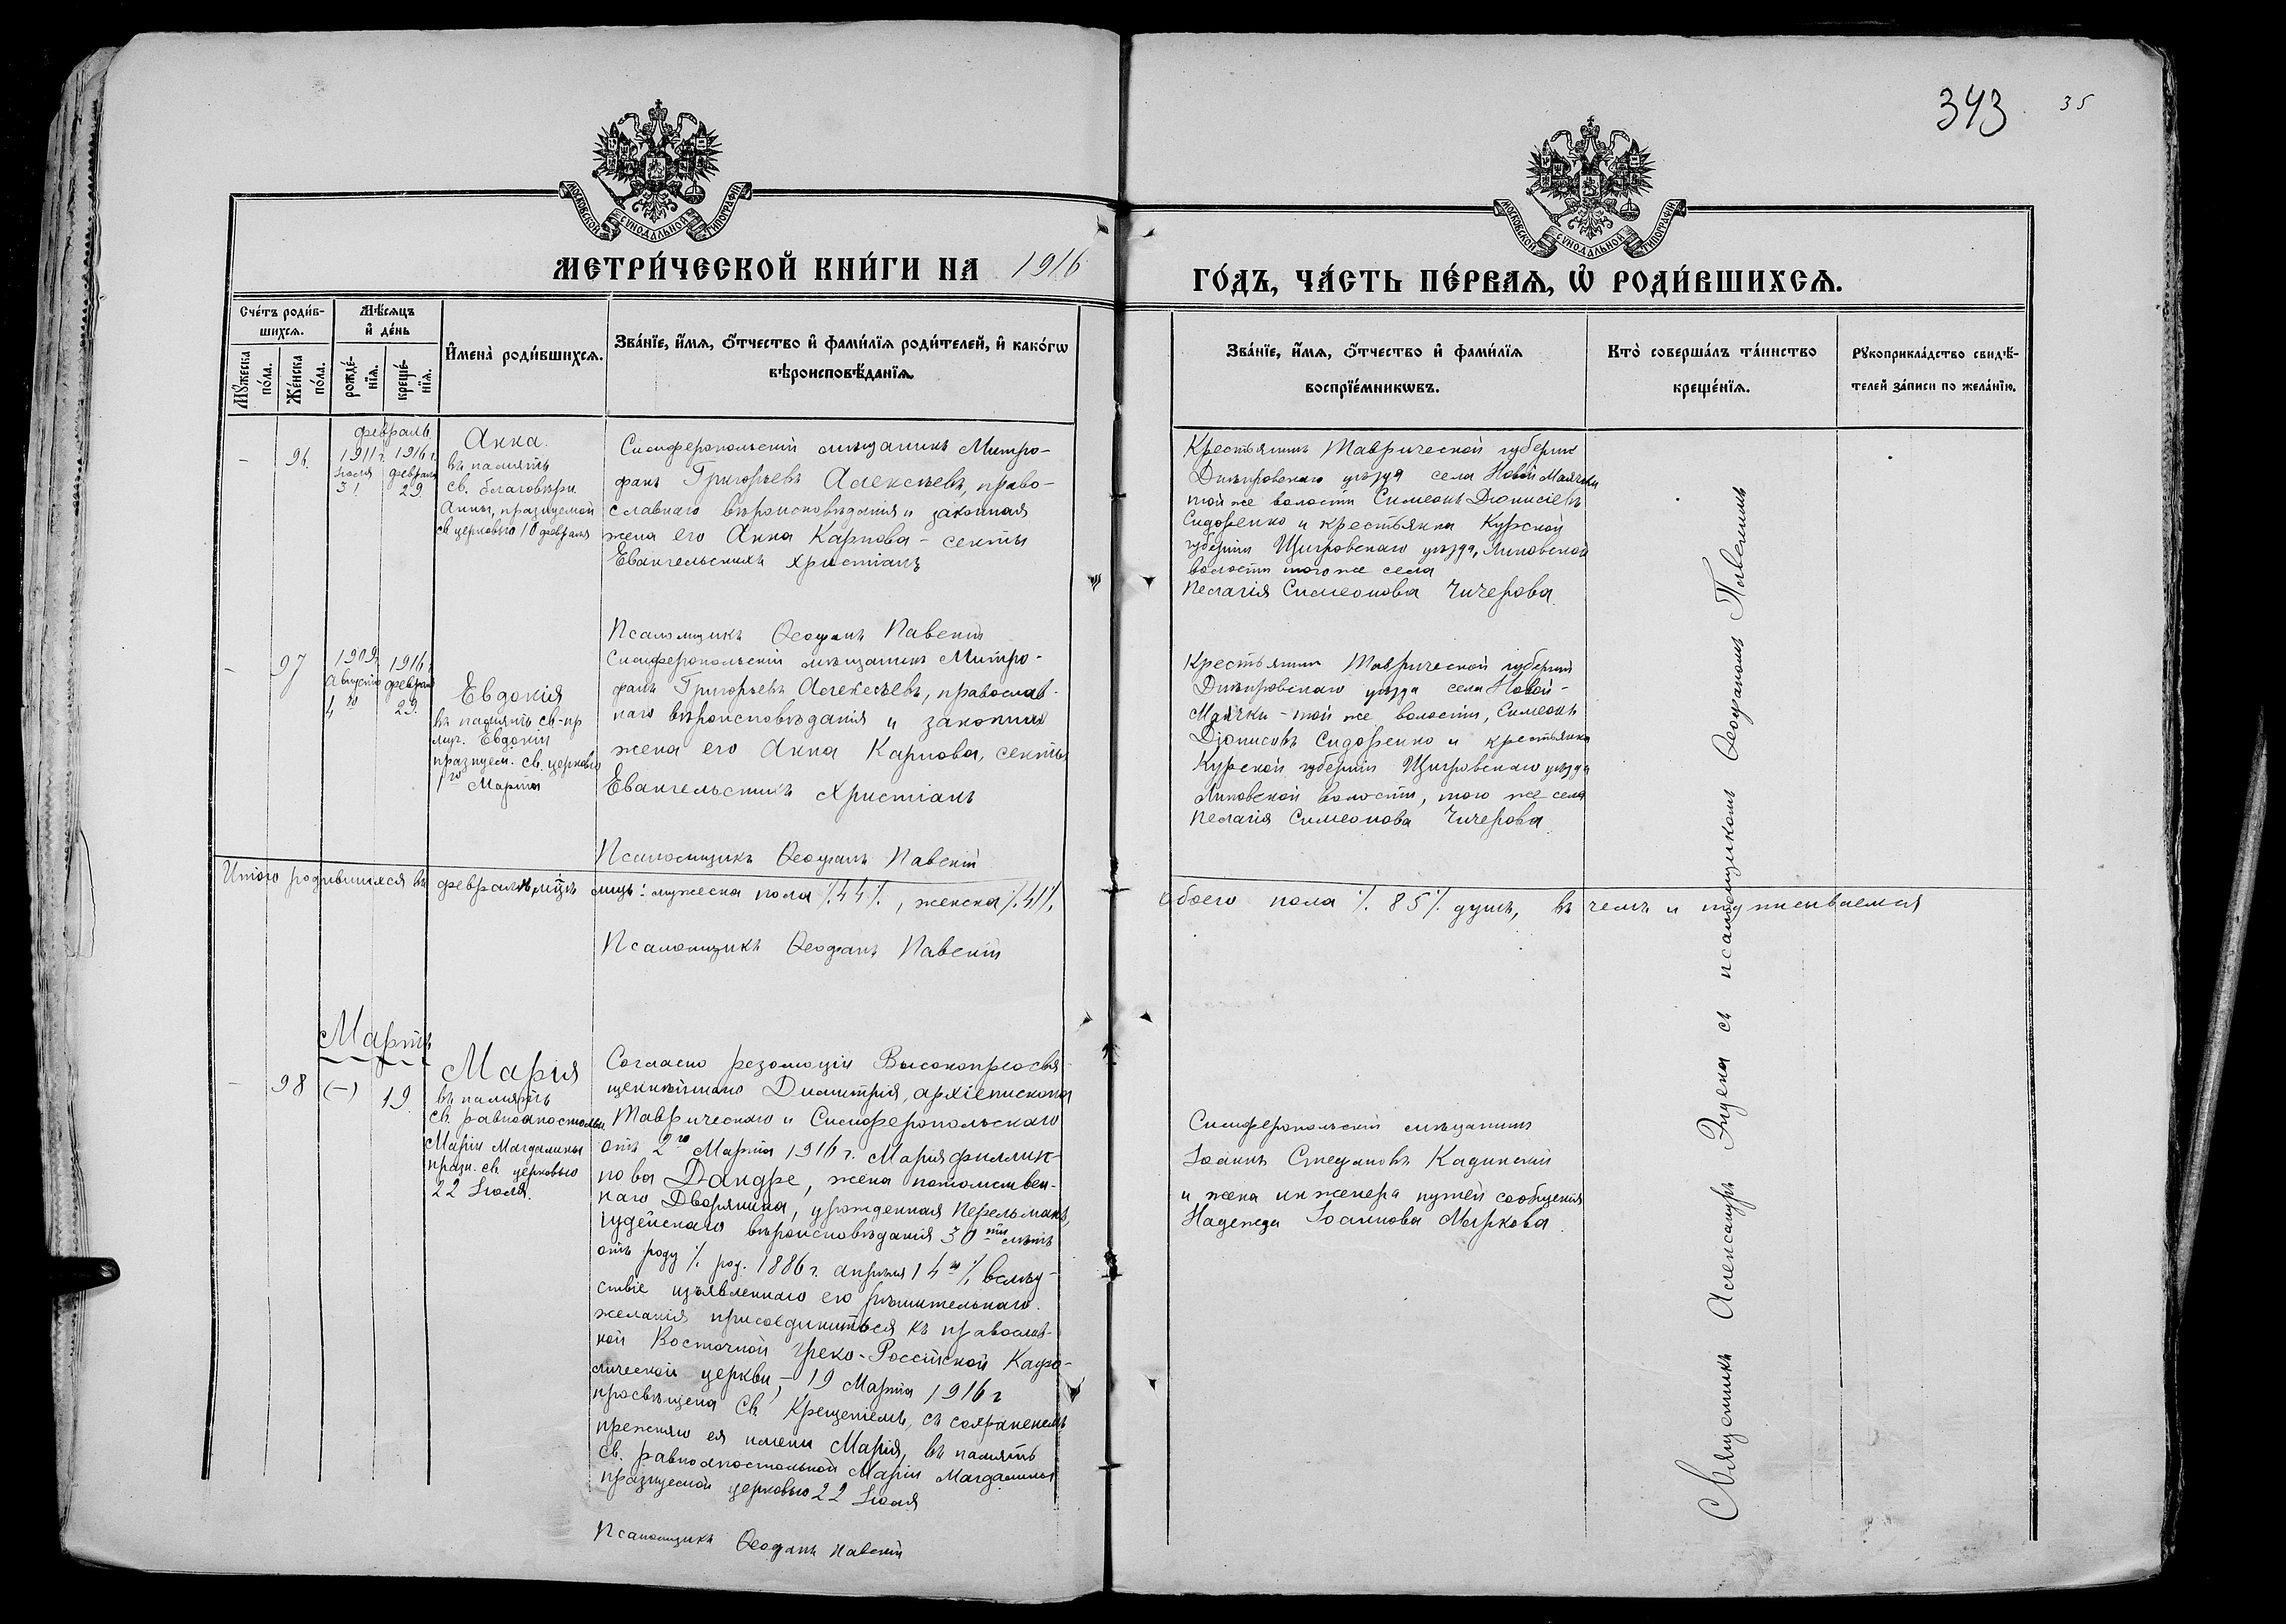 343
35
МОСКОВСКОЙ СѴНОДАЛЬНОЙ ТИПОГРАФІИ
МОСКОВСКОЙ СѴНОДАЛЬНОЙ ТИПОГРАФІИ
МЕТРИ́ЧЕСКОЙ КНИ́ГИ НА 1916
ГО́ДЪ, ЧА́СТЬ ПЕ́РВАЯ, Ѡ҆ РОДИ́ВШИХСЯ.
Сче́тъ роди́в-
шихся.
Мꙋ́жеска
по́ла.
Же́нска
по́ла.
Мѣ́сяцъ
и҆ де́нь
рожде́-
нїя.
креще́-
нїя.
И҆мена̀ роди́вшихся.
Зва́нїе, и҆́мя, ѻ҆́тчество и҆ фами́лїя роди́телей, и҆ како́гѡ
вѣроисповѣ́данїя.
Зва́нїе, и҆́мя, ѻ҆́тчество и҆ фами́лїя
воспрїе́мникѡвъ.
Кто̀ соверша́лъ та́инство
креще́нїя.
Рꙋкоприкла́дство свидѣ́-
телей за́писи по жела́нїю.
– 96.
февраль
1911 г. Іюля 31
1916 г. февраля 29
Анна.
въ память
св. благовѣрн.
Анны, празнуемой
св церковью 10 февраля
Симферопольскій мѣщанинъ Митро-
фанъ Григорьевъ Алексѣевъ, право-
славнаго вѣроисповѣданія и законная
жена его Анна Карпова – секты
Евангельскихъ христіанъ
Псаломщикъ Ѳеофанъ Павскій
Крестьянинъ Таврической губерніи
Днѣпровскаго уѣзда села Новой Маячки
той же волости Симеонъ Діонисіевъ
Сидоренко и крестьянка Курской
губерніи Щигровскаго уѣзда, Липовской
волости того же села
Пелагія Симеонова Чичерова.
– 97
1909 г. Августа 4го
1916 г. февраля 29.
Евдокія
въ память св-пр
муч. Евдокіи
празнуем. св. церковью
1го Марта
Симферопольскій мѣщанинъ Митро-
фанъ Григорьевъ Алексѣевъ, православ-
наго вѣроисповѣданія и законная
жена его Анна Карпова, секты
Евангельскихъ Христіанъ
Псаломщикъ Ѳеофанъ Павскій
Крестьянинъ Таврической губерніи
Днѣпровскаго уѣзда села Новой-
Маячки – той же волости, Симеонъ
Діонисовъ Сидоренко и крестьянка
Курской губерніи Щигровскаго уѣзда
Липовской волости, того же села
Пелагія Симеонова Чичерова.
Итого родившихся въ февралѣ мцѣ лицъ: мужеска пола ⁒44⁒, женска ⁒41⁒,
обоего пола ⁒ 85⁒ душъ, въ чемъ и подписываемся
Псаломщикъ Ѳеофанъ Павскій
Мартъ
– 98 (–) 19
Марія
въ память
св. равноапостольн.
Маріи Магдалины
празн. св. церковью
22 Іюля.
Согласно резолюціи Высокопреосвя-
щеннѣйшаго Димитрія, архіепископа
Таврическаго и Симферопольскаго
отъ 2го Марта 1916 г. Марія Филлип-
пова Дандре, жена потомствен-
наго Дворянина, урожденная Перельманъ,
іудейскаго вѣроисповѣданія 30ти лѣтъ
отъ роду ⁒ род. 1886 г. апрѣля 14го ⁒, вслѣд-
ствіе изъявленнаго ею рѣшительнаго
желанія присоединиться къ православ-
ной Восточной Греко-Россійской Кафо-
лической церкви, – 19 Марта 1916 г
просвѣщена Св. Крещеніемъ, съ сохраненіемъ
прежняго ея имени Марія, въ память
св. равноапостольной Маріи Магдалины
празнуемой церковью 22 Іюля
Псаломщикъ Ѳеофанъ Павскій
Симферопольскій мѣщанинъ
Іоаннъ Стефановъ Кадинскій
и жена инженера путей сообщенія
Надежда Іоаннова Маркова.
Священникъ Александръ Эндека съ псаломщикомъ Ѳеофаномъ Павскимъ